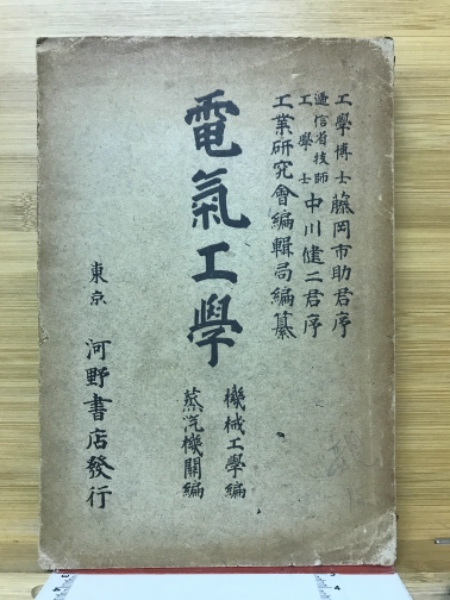 工學博士 藤岡市助君序
遞信省技師
工學士
中川健二君序
工業研究會編輯局編纂
電氣工學
機械工學編
蒸汽機關編
東京 河野書店發行